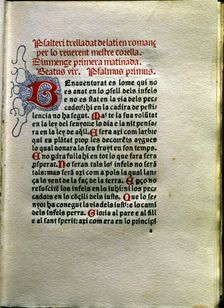 Psalteri trelladat de lati en romanç
per lo reverent mestre corella.
Diumenge primera matinada.
Beatus vir. Psalmus primus.
Benaventurat es lome qui no
es anat en lo consell dels infels
e no es stat en la via dels pec
cadors: ni en la cadira de pesti
lencia no ha segut. Mas te la sua volūtat
en la ley del senyor lo dia e la nit pensara
en la ley de aqll. E sera axi com larbre
qui es plātat prop les decorrēts aygues
lo qual donara lo seu fruyt en son temps.
E no pdra fulla: hi en tot lo que fara sera
psperat. No seran tals lo infels no seran
tals: mas serā axi com a pols la qual lan
ça lo vent de la faç de la terra. E p ço no
resuscitē los infels en lo iuhi: ni los pec
cadors en lo cōcili dels iusts. Que lo se
nyor ha conegut la via dels iusts: e lo cami
dels infels perira. Gloria al pare e al fill
e al sant sperit: axi com era en lo princip